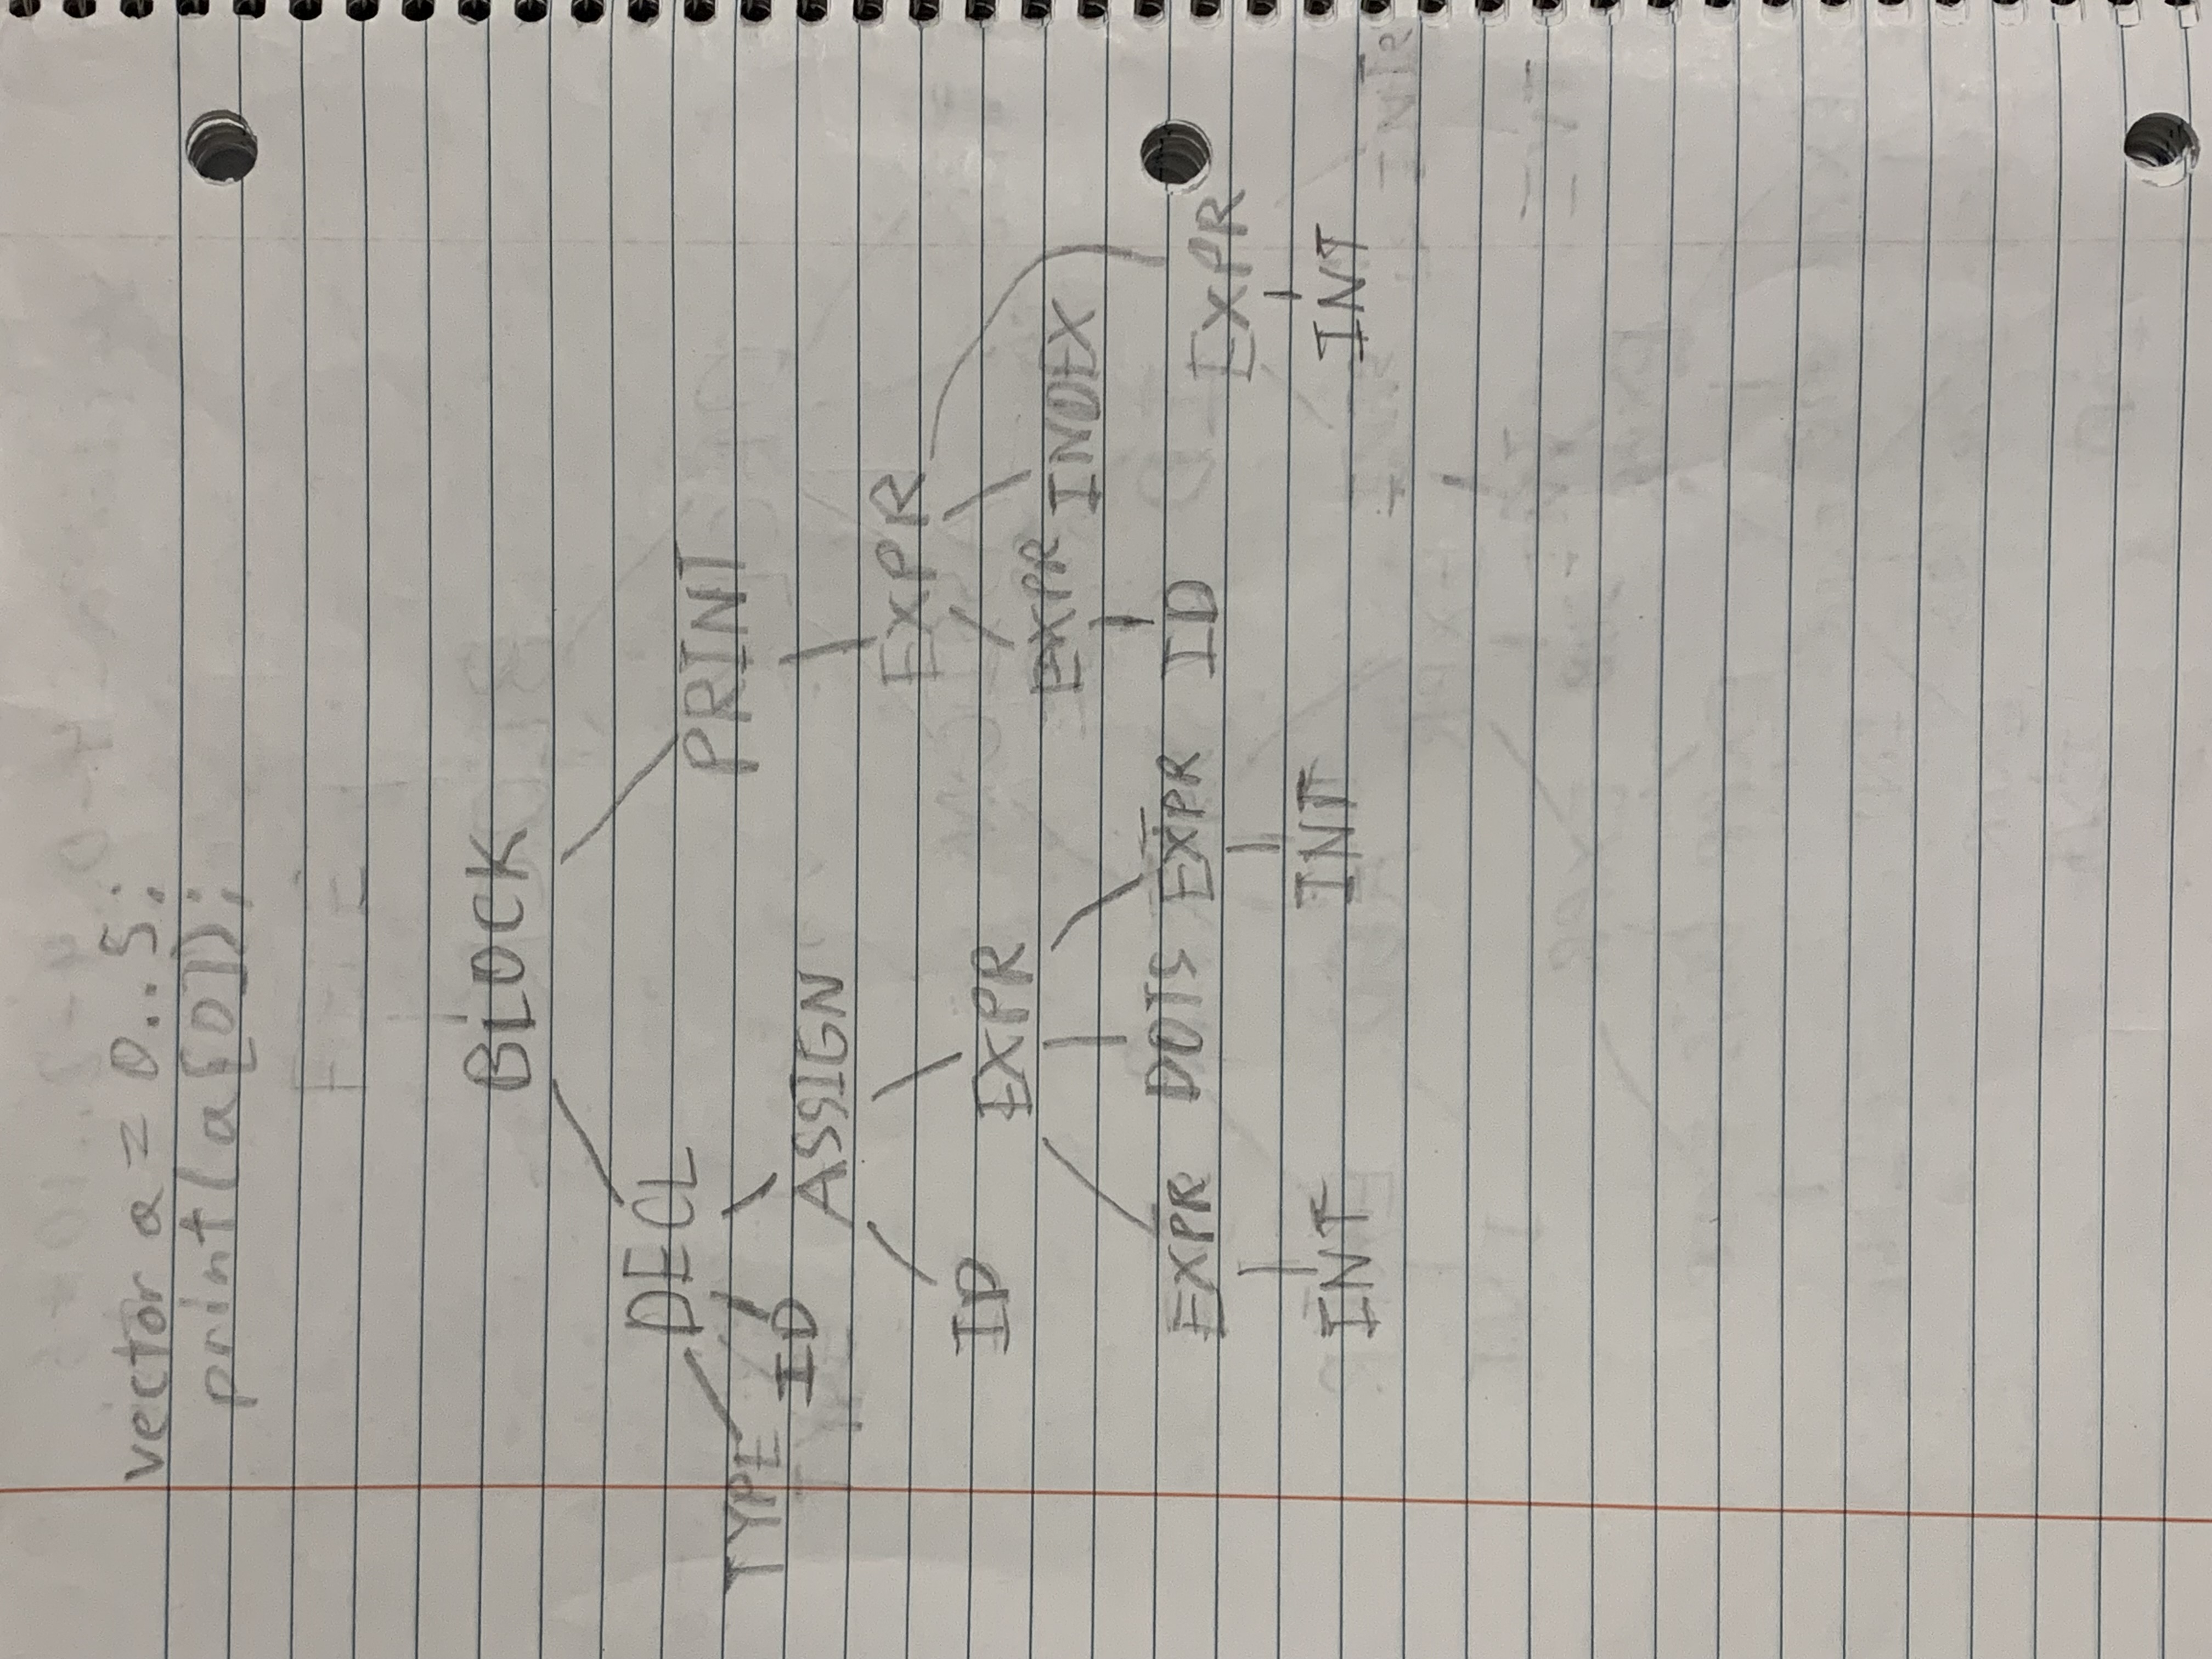 vector a = 0..5;
print(a[0]);
BLOCK
DECL PRINT
TYPE ID ASSIGN
EXPR
ID EXPR
EXPR INDEX
EXPR DOTS EXPR ID EXPR
INT INT INT